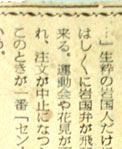 …」生粋の岩国人だけに
はしくに岩国弁が飛
来る。運動会や花見が
れ、注文が中止になつ
このときが一番「セン